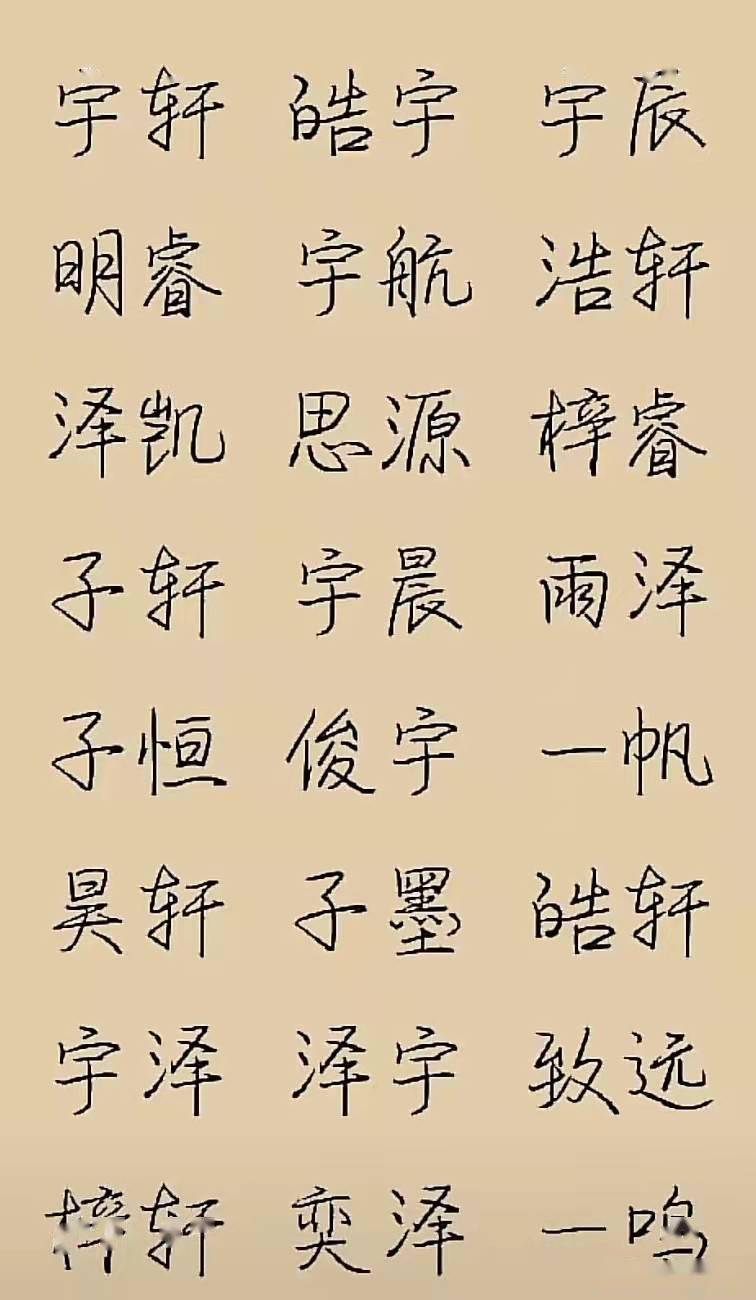 宇轩 皓宇 宇辰
明睿 宇航 浩轩
泽凯 思源 梓睿
子轩 宇晨 雨泽
子恒 俊宇 一帆
昊轩 子墨 皓轩
宇泽 泽宇 致远
梓轩 奕泽 一鸣